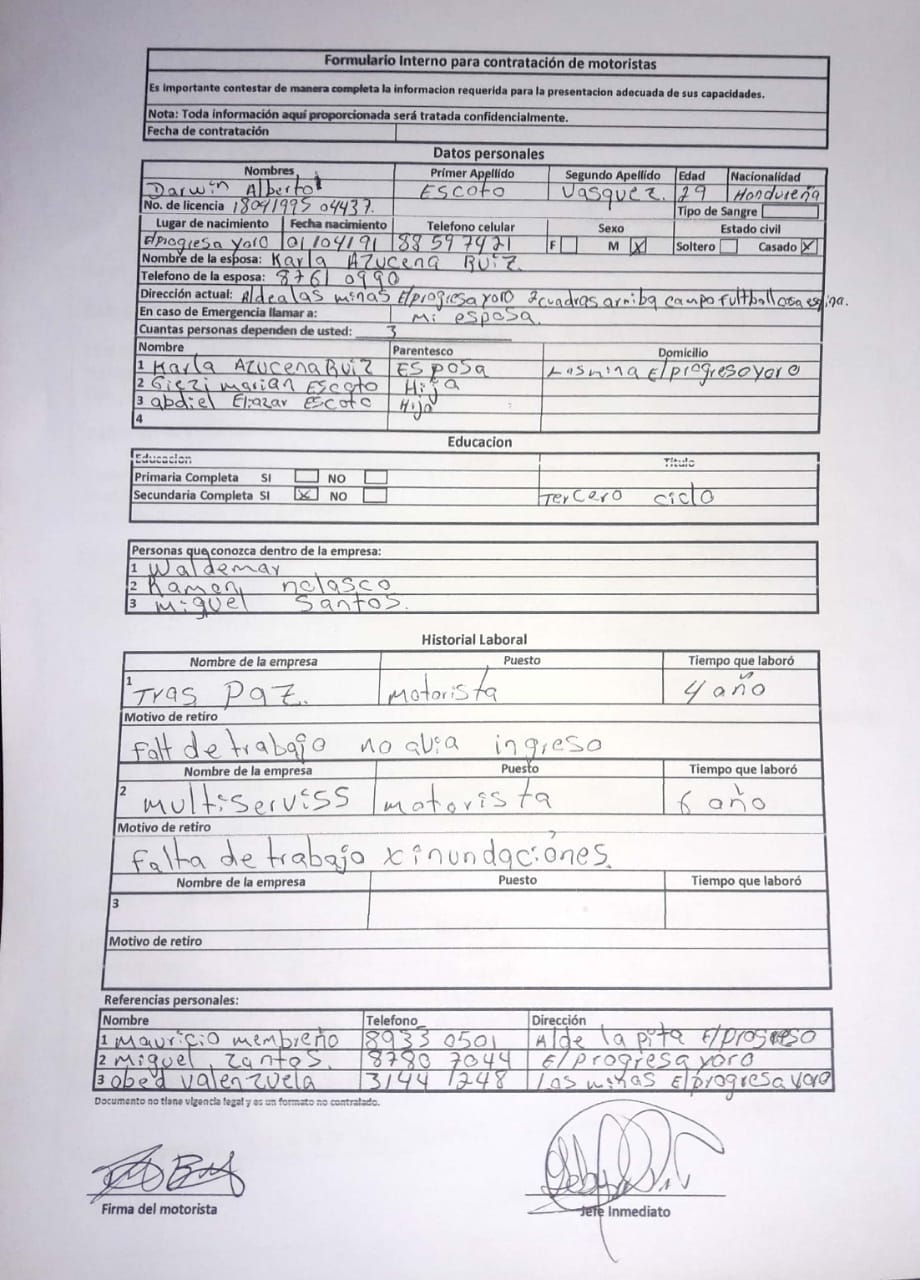 Formulario Interno para contratación de motoristas
Es importante contestar de manera completa la informacion requerida para la presentacion adecuada de sus capacidades.
Nota: Toda información aquí proporcionada será tratada confidencialmente.
Fecha de contratación
Datos personales
Nombres Primer Apellido Segundo Apellido Edad Nacionalidad
Darwin Alberto Escoto Vasquez. 29 Hondureña
No. de licencia 1804199504437. Tipo de Sangre
Lugar de nacimiento Fecha nacimiento Telefono celular Sexo Estado civil
El progresa yoro 01/04/91 88597421 F M X Soltero Casado X
Nombre de la esposa: Karla Azucena Ruiz.
Telefono de la esposa: 8761 0990
Dirección actual: Aldea las minas El progresa yoro 2 cuadras arriba campo
En caso de Emergencia llamar a: mi esposa.
Cuantas personas dependen de usted: 3
Nombre Parentesco Domicilio
1 Karla Azucena Ruiz Esposa Las mina El progreso yoro
2 marian Escoto Hija
3 abdiel Eliazar Escoto
4
Educacion
Educacion Titulo
Primaria Completa SI NO
Secundaria Completa SI X NO Tercero ciclo
Personas que conozca dentro de la empresa:
1 Waldemar
2 Ramon nolasco
3 Miguel Santos.
Historial Laboral
Nombre de la empresa Puesto Tiempo que laboró
1 Tras Paz. Motorista 4 año
Motivo de retiro
Falt de trabajo no abia ingreso
Nombre de la empresa Puesto Tiempo que laboró
2 multiserviss motorista 6 año
Motivo de retiro
Falta de trabajo x inundaciones.
Nombre de la empresa Puesto Tiempo que laboró
3
Motivo de retiro
Referencias personales:
Nombre Telefono Dirección
1 Mauricio membreño 8933 0501 Alde la pita El progreso
2 Miguel Zantos. 8780 7044 El progresa yoro
3 obed valenzuela 3144 1248 Las minas El progresa yoro
Documento no tiene vigencia legal y es un formato no contratado.
Firma del motorista Jefe Inmediato